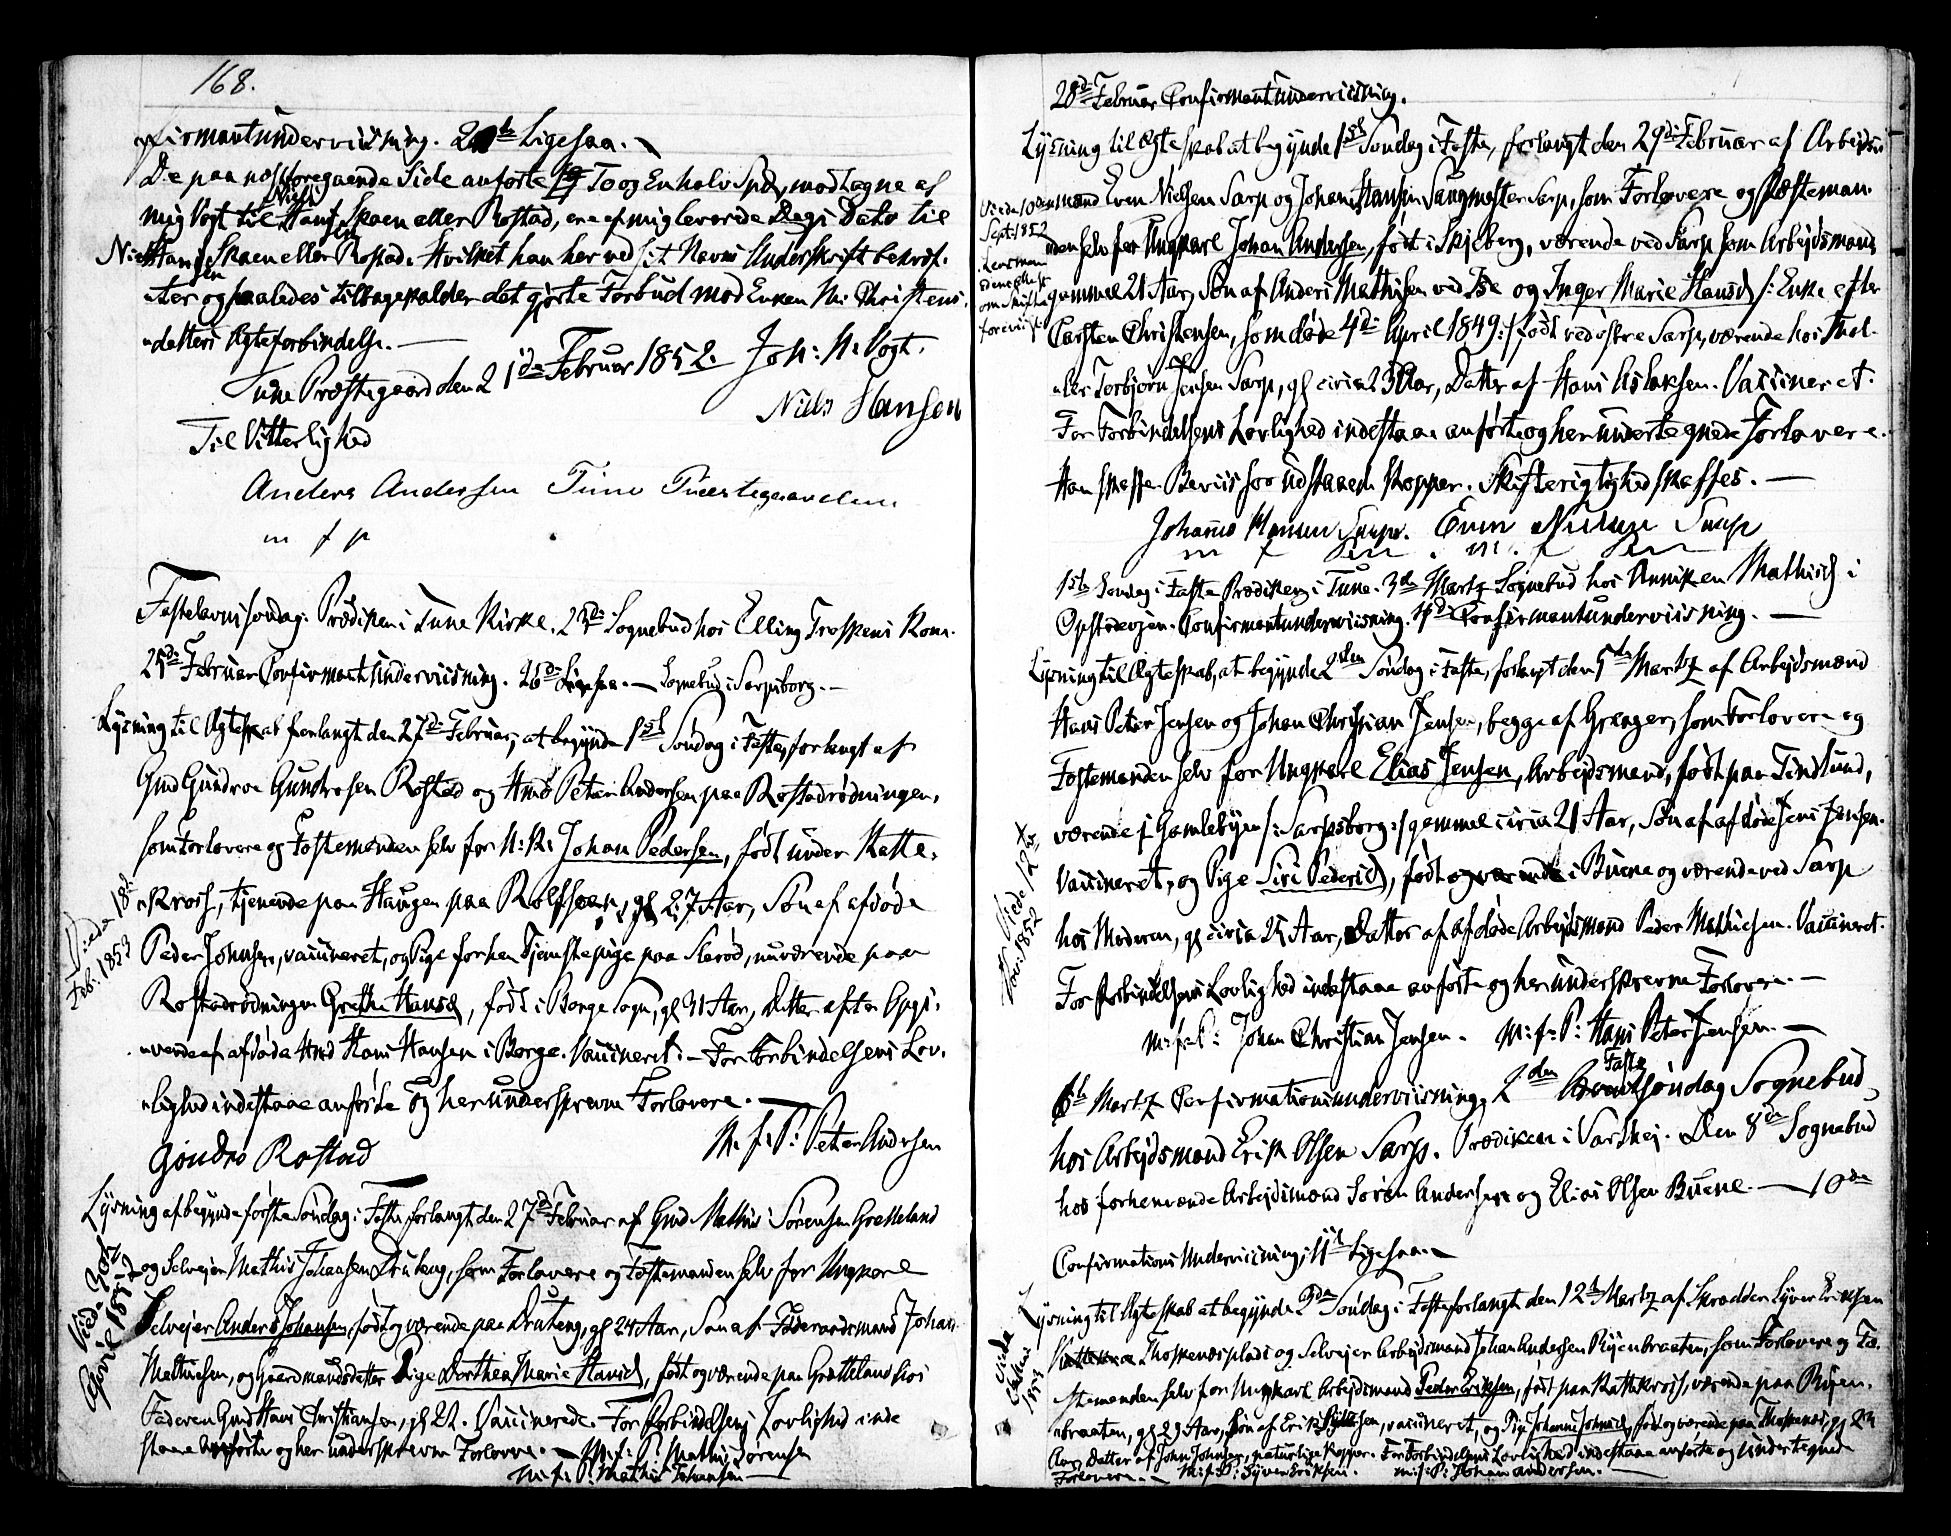 168.
firmantunderviisning. 20de Ligesaa.
De paa næstforegaaende Side anførte To og En halv Spd, modtagne af
mig Vogt til Niels Hansen Skaen eller Rostad, ere af mig leverede Dags Dato til
Niels Hansen Skaen eller Rostad. Hvilket han her ved sit Navns Underskrift bekræf-
ter og saaledes tilbagekalder det gjorte Forbud mod Enken Mr. Christens-
datters Ægteforbindelse.
Tune Præstegaard den 21de Februar 1852. Joh: N. Vogt.
Niels Hansen
Til Vitterlighed
Anders Andersen Tune Præstegaarden
m f p
Fastelavns søndag. Prædiken i Tune Kirke. 23de Sognebud hos Elling Troskens Kone.
25de Februar Confirmantundervisning. 26de Ligesaa. — Sognebud i Sarpsborg. —
Lysning til Ægteskab forlangt den 27de Februar, at begynde 1ste Søndag i Faste, forlangt af
Gmd Gundroe Gundrosen Rostad og Hmd Peter Andersen paa Rostadrødningen,
som Forlovere og Fæstemanden selv for U: K: Johan Pedersen, født under Katte-
Kroch, tjenende paa Haugen paa Rolfsøen, gl 27 Aar, Søn af afdøde
Peder Johnsen, vaccineret, og Pige forhen Tjenestepige paa Slerød, nuværende paa
Rostadrødningen Grethe Hansd, født i Borge Sogn, gl 31 Aar, Datter efter Opgi-
vende af afdøde Hmd Hans Hansen i Borge. Vaccineret. — For Forbindelsens Lov-
lighed indestaae anførte og her underskrevne Forlovere. —
Gondro Rostad M. f: P: Peter Andersen
Viede 18de
Feb. 1853
Lysning at begynde første Søndag i Faste, forlangt den 27de Februar af Gmd Mathis Sørensen Grælleland
og Selveier Mathis Johansen Drüteng, som Forlovere og Fæstemanden selv for Ungkarl
Selveier Anders Johansen, født og værende paa Drüteng, gl 24 Aar, Søn af Føderaadsmand Johan
Mathiesen, og Gaardmandsdatter Pige Dorthea Marie Hansd, født og værende paa Grælleland hos
Faderen Gmd Hans Christiansen, gl 22. Vaccinerede. For Forbindelsens Lovlighed inde
staae anførte og her underskrevne Forlovere. — M: f: P: Mathis Sørensen
m: f: P: Mathis Johansen —
Viede 30te
April 1852
28de Februar Confirmantundervisning.
Lysning til Ægteskab at begynde 1ste Søndag i Faste, forlangt den 29de Februar af Arbejds-
mand Even Nielsen Sarp og Johans Hansen Sangmester Sarp, som Forlovere og Fæsteman-
den selv for Ungkarl Johan Andersen, født i Skjeberg, værende ved Sarp som Arbejdsmand
gammel 21 Aar, Søn af Anders Mathisen ved Ise og Inger Marie Hansd /: Enke efter
Carsten Christensen, som døde 4de April 1849 :/ født ved østre Sarp, værende hos Møl-
ler Torbjørn Jensen Sarp, gl circa 23 Aar, Datter af Hans Aslaksen. Vaccineret.
For Forbindelsens Lovlighed indestaae anførte og her undertegnede Forlovere.
Han skaffer Beviis for udstaaede Kopper. Skifterigtighed skaffes. —
Viede 10de
Sept: 1852
Johanes Hansen Sarp. Even Nielsen Sarp
m f Pen . m. f Pen
1ste Søndag i Faste Prædiken i Tune. 3de Martz Sognebud hos Anniken Mathisd i
Opstadvejen. Confirmantundervisning. 4de Confirmantundervisning. —
Lysning til Ægteskab, at begynde 2den Søndag i Faste, forlangt den 5te Martz af Arbejdsmænd
Hans Peter Jensen og Johan Christian Jensen, begge af Grænger, som Forlovere og
Fæstemanden selv for Ungkarl Elias Jensen, Arbejdsmand, født paa Tindlund,
værende i Gamlebyen /: Sarpsborg :/ gammel circa 21 Aar, Søn af afdøde Jens Jensen.
Vaccineret, og Pige Siri Pedersd, født i Buene og værende ved Sarp
hos Moderen, gl circa 25 Aar, Datter af afdøde Arbejdsmand Peder Mathiesen. Vaccineret.
For Forbindelsens Lovlighed indestaae anførte og her underskrevne Forlovere. —
m: f: P: Johan Christian Jensen. M: f: P: Hans Peter Jensen —
Viede 12te
1852
6te Martz Confirmationsundervisning, 2den Faste søndag Sognebud
hos Arbejdsmand Erik Olsen Sarp. Prædiken i Varteig. Den 8de Sognebud
hos forhenværende Arbejdsmand Søren Andersen og Elias Olsen Buene. — 10de
Confirmations Undervisning; 11te Ligesaa.
Lysning til Ægteskab at begynde 3de Søndag i Faste forlangt den 12te Martz af Skrædder Syver Eriksen
Thoskenæsplads og Selveier Arbejdsmand Johan Andersen Ryenbraaten, som Forlovere og Fæ-
stemanden selv for Ungkarl Arbejdsmand Peder Eriksen, født paa Kattekroch, værende paa Ryen-
braaten, gl 29 Aar, Søn af Erik Syversen, vaccineret, og Pige Johanne Johnsd, født og værende paa Thoskenæs, gl 23
Aar, Datter af John Johnsen, naturlige Kopper. For Forbindelsens Lovlighed indestaae anførte og undertegnede
Forlovere. — M: f: P: Syver Eriksen. m: f: P: Johan Andersen. —
Viede
1853